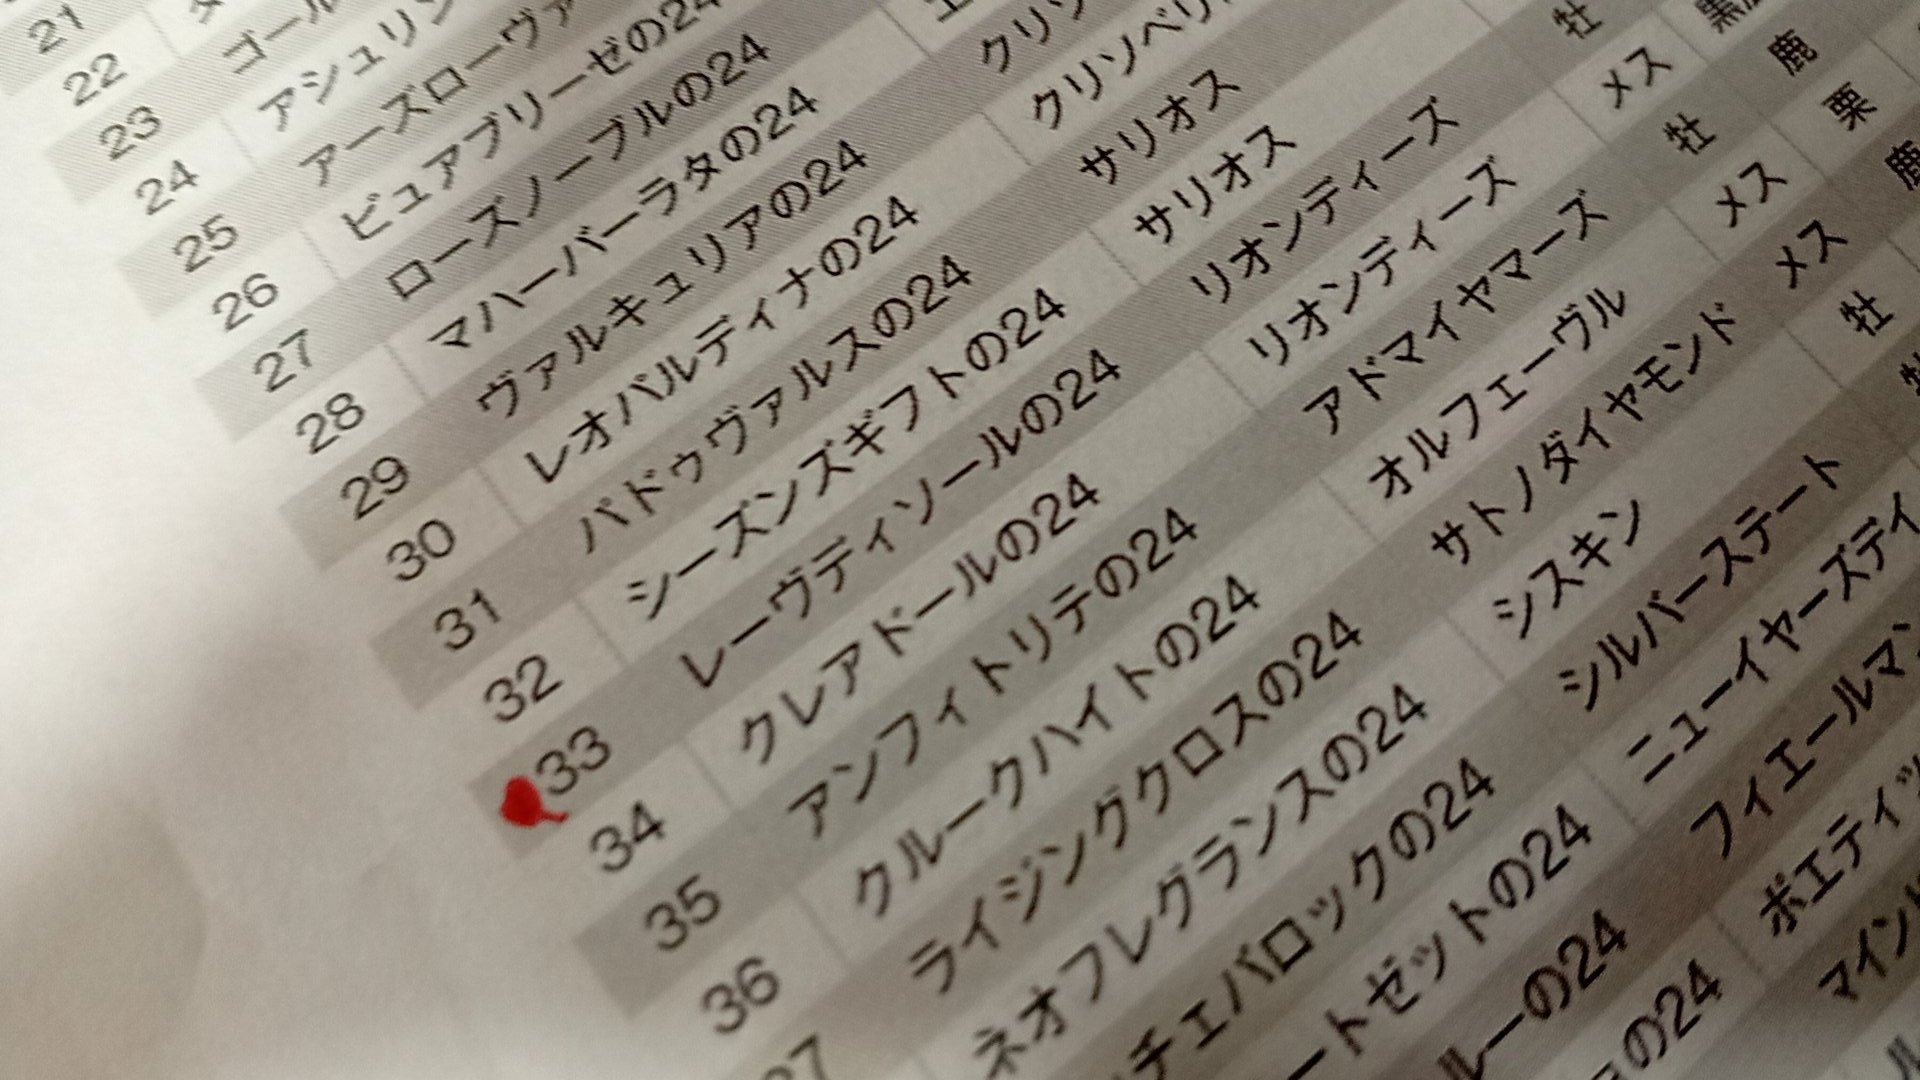 21
22
23 ゴール
24 アシュリン
25 アーズローヴァ
26 ピュアブリーゼの24
27 ローズノーブルの24
28 マハーバーラタの24
29 ヴァルキュリアの24 クリソ
30 レオパルディナの24 クリソベリ
31 パドゥヴァルスの24 サリオス
32 シーズンズギフトの24 サリオス
33 レーヴディソールの24 リオンディーズ 牡
34 クレアドールの24 リオンディーズ メス 黒
35 アンフィトリテの24 アドマイヤマーズ 牡 鹿
36 クルークハイトの24 オルフェーヴル メス 栗
37 ライジングクロスの24 サトノダイヤモンド メス 鹿
ネオフレグランスの24 シスキン 牡
チェバロックの24 シルバーステート
ートゼットの24 ニューイヤーズデイ
ルーの24 フィエールマン
の24 ポエティッ
マイン